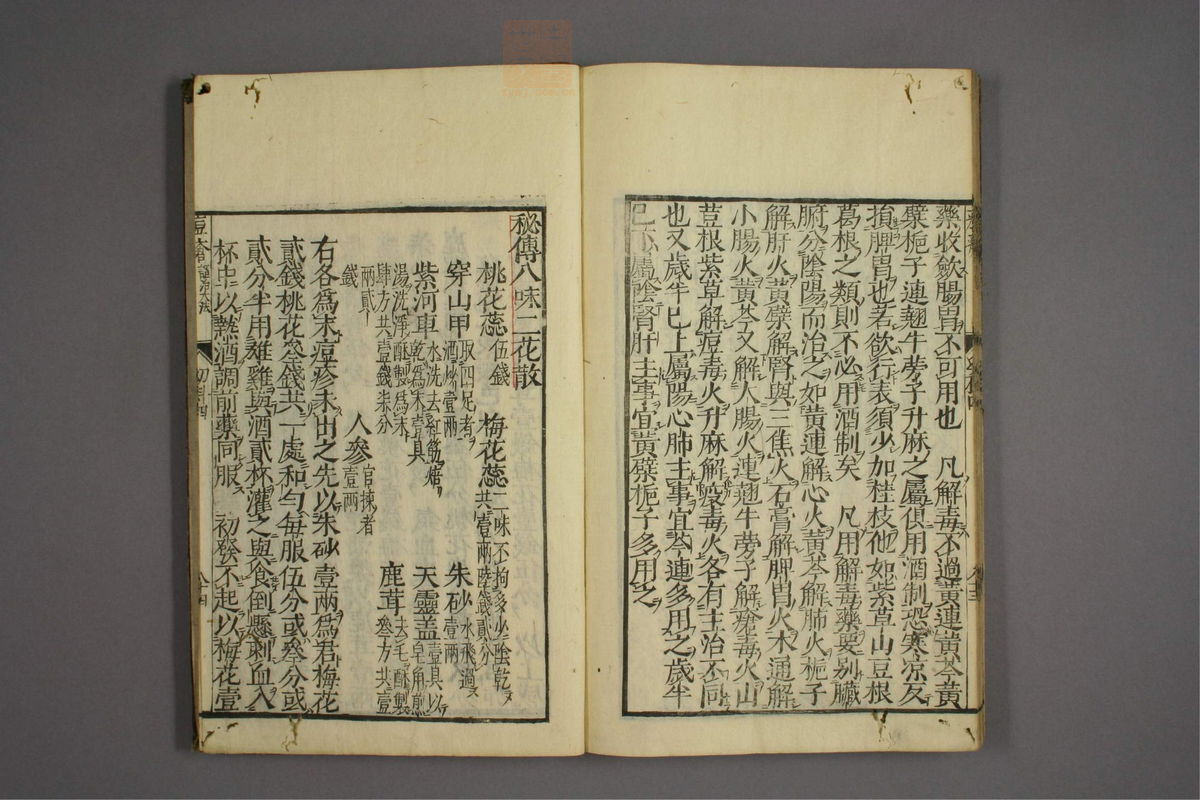 藥收斂腸胃不可用也　凡解毒不過黃連黃芩黃
檗梔子連翹牛蒡子升麻之屬俱用酒制恐寒凉反
損脾胃也若欲行表須少加桂枝他如紫草山豆根
葛根之類則不必用酒制矣　凡用解毒藥要别臟
腑分陰陽而治之如黃連解心火黃芩解肺火梔子
解肝火黃檗解腎與三焦火石膏解脾胃火木通解
小腸火黃芩又解大腸火連翹牛蒡子解瘡毒火山
荳根紫草解痘毒火升麻解疫毒火各有主治不同
也又歲半已上屬陽心肺主事宜芩連多用之歲半
已下屬陰腎肝主事宜黃檗梔子多用之
秘傳八味二花散
桃花蕊伍錢　梅花蕊二味不拘多少陰乾共壹兩陸錢貳分
穿山甲取四足者酒炒壹兩　朱砂水飛過壹兩
紫河車水洗去紅筋焙乾爲末壹具　天靈盖壹具以皂角煎
湯洗淨酥製爲末肆方共壹錢柒分　鹿茸去毛酥製叄方共壹
兩貳錢　人參官揀者壹兩
右各爲末痘疹未出之先以朱砂壹兩爲君梅花
貳錢桃花叄錢共一處和勻每服伍分或叄分或
貳分半用雄雞與酒貳杯灌之與食倒懸刺血入
杯中以熱酒調前藥同服　初發不起以梅花壹